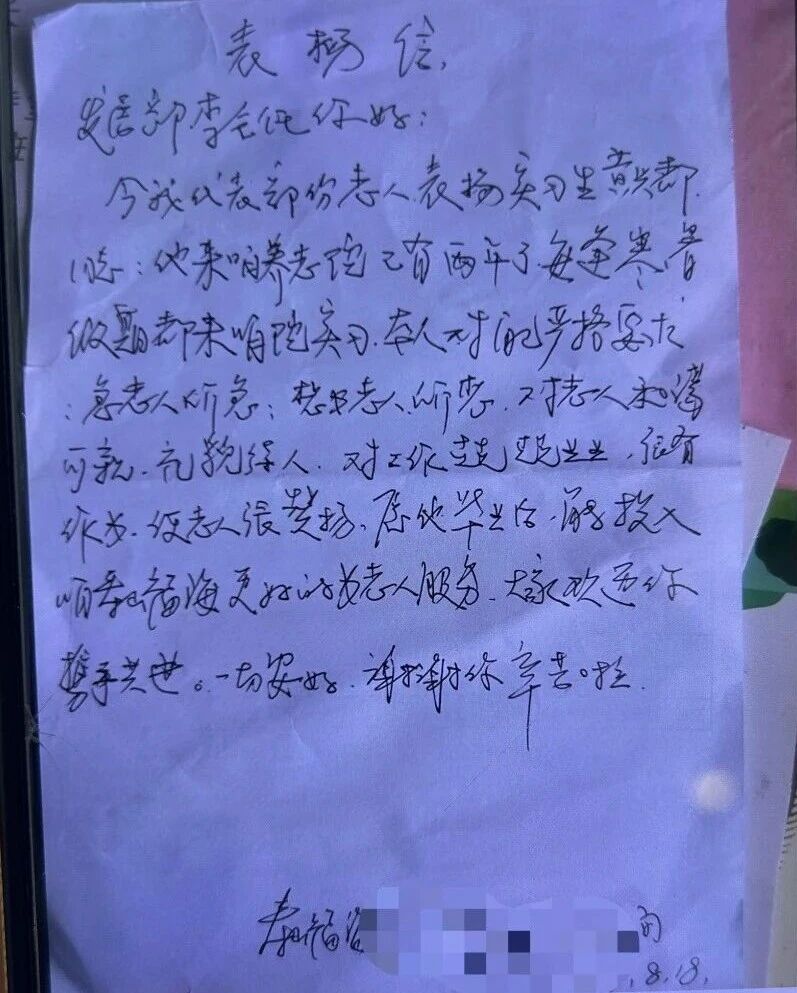 表扬信,
李主任你好:
今我代表部份老人表扬实习生黄
他来咱养老院已有两年了每逢寒暑
假期都来咱院实习.本人对自己严格要求
:急老人所急;想老人所想.对老人和蔼
可亲.礼貌待人.对工作兢兢业业.很有
作为.使老人张赞扬.愿他毕业后.能投入
咱福海更好的为老人服务.大家欢迎你
携手共进。一切安好.谢谢你辛苦啦.
8.18.